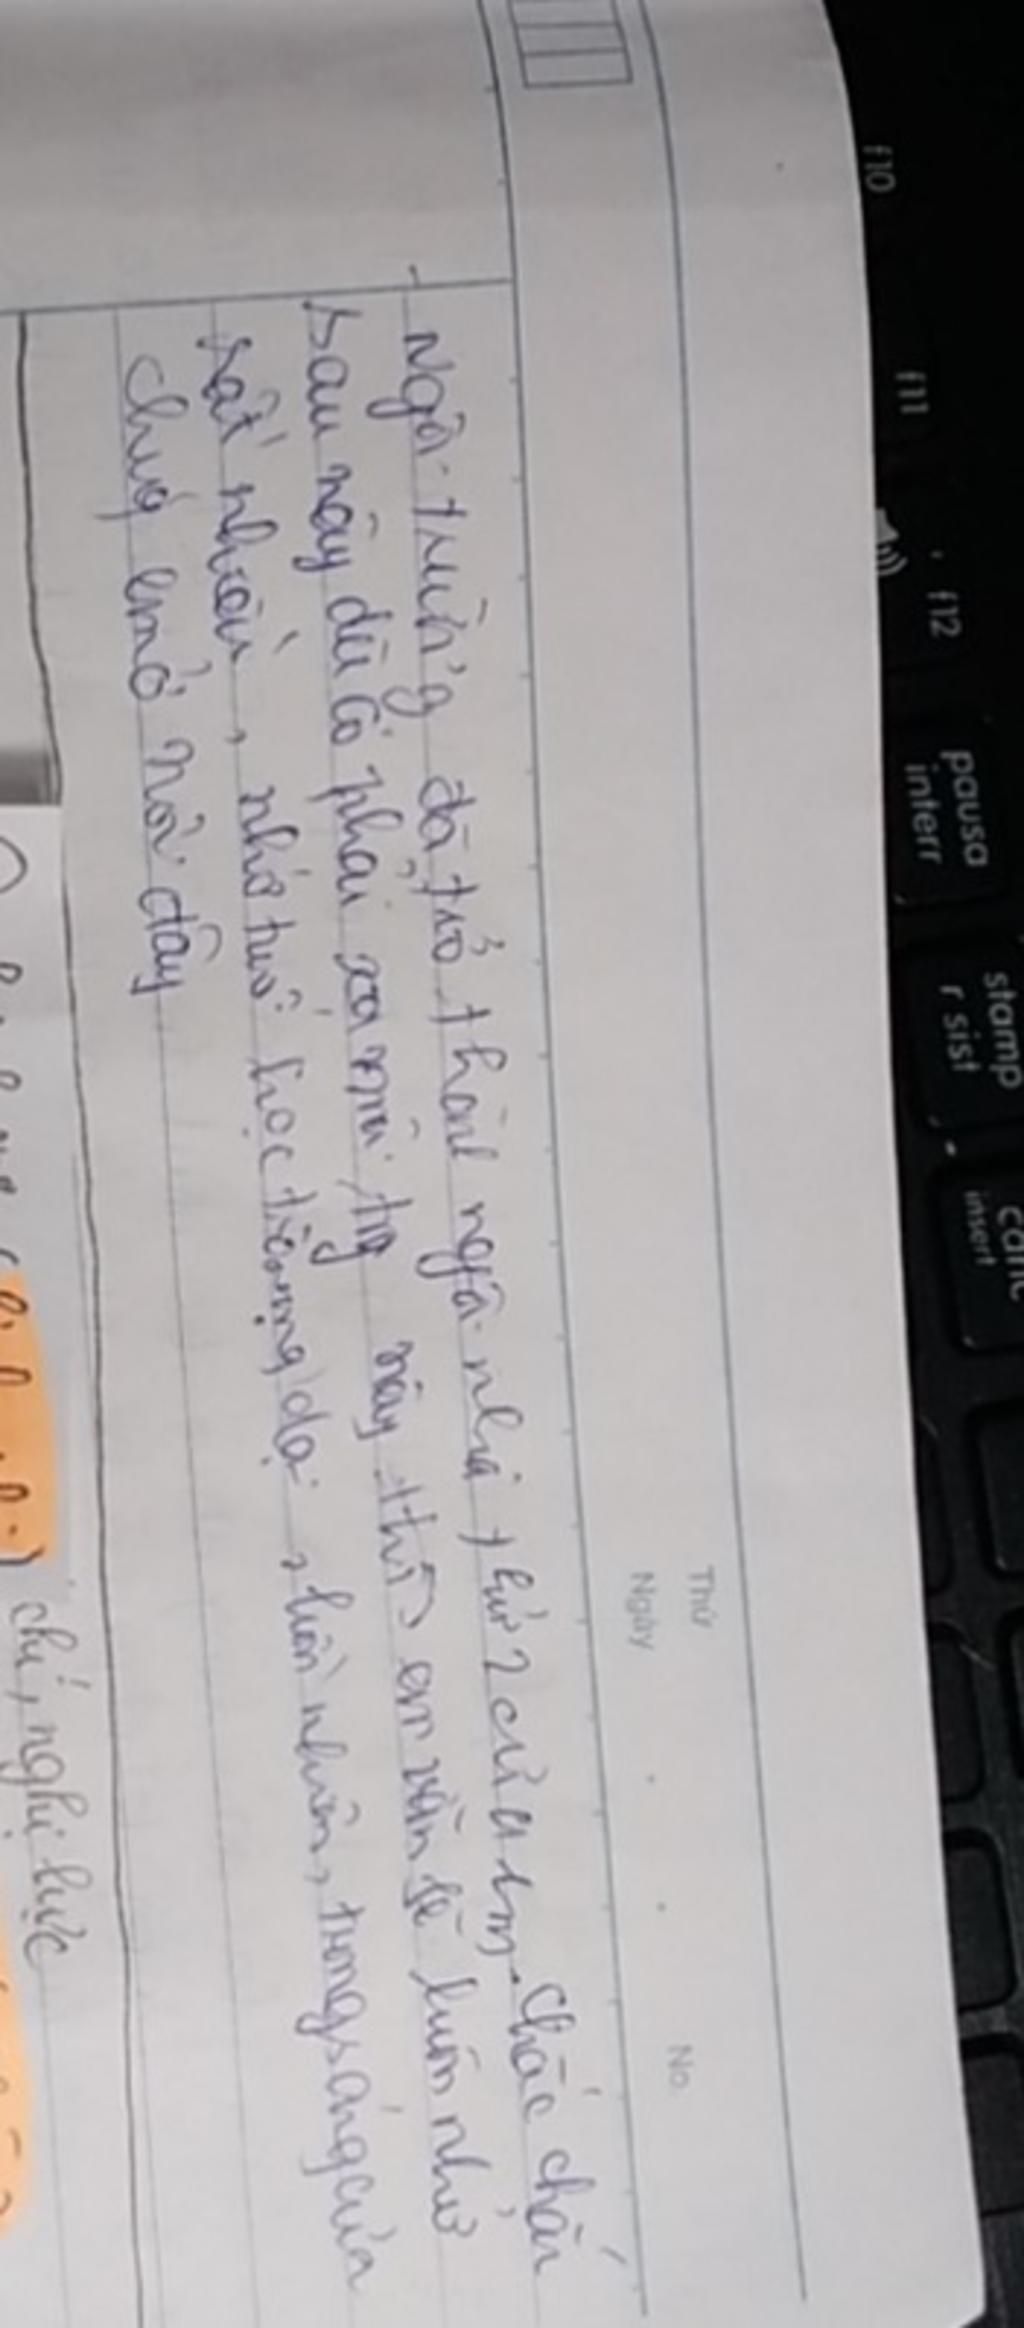 Thứ
Ngày
No.
- Ngôi trường đã trở thành ngôi nhà thứ 2 của em. Chắc chắn
sau này dù có phải xa mái trg này thì em vẫn sẽ luôn nhớ
rất nhiều, nhớ tuổi học trò dại, hồn nhiên, trong sáng của
chúng em ở nơi đây
chí, nghị lực
f10
f11
f12
pausa
interr
stamp
r sist
canc
insert